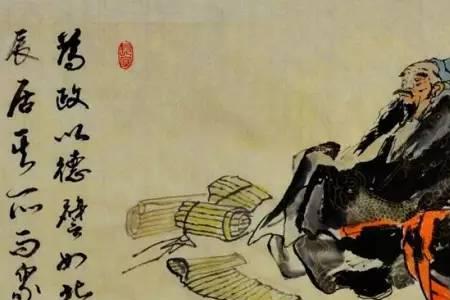 為政以德譬如北
辰居其所而眾